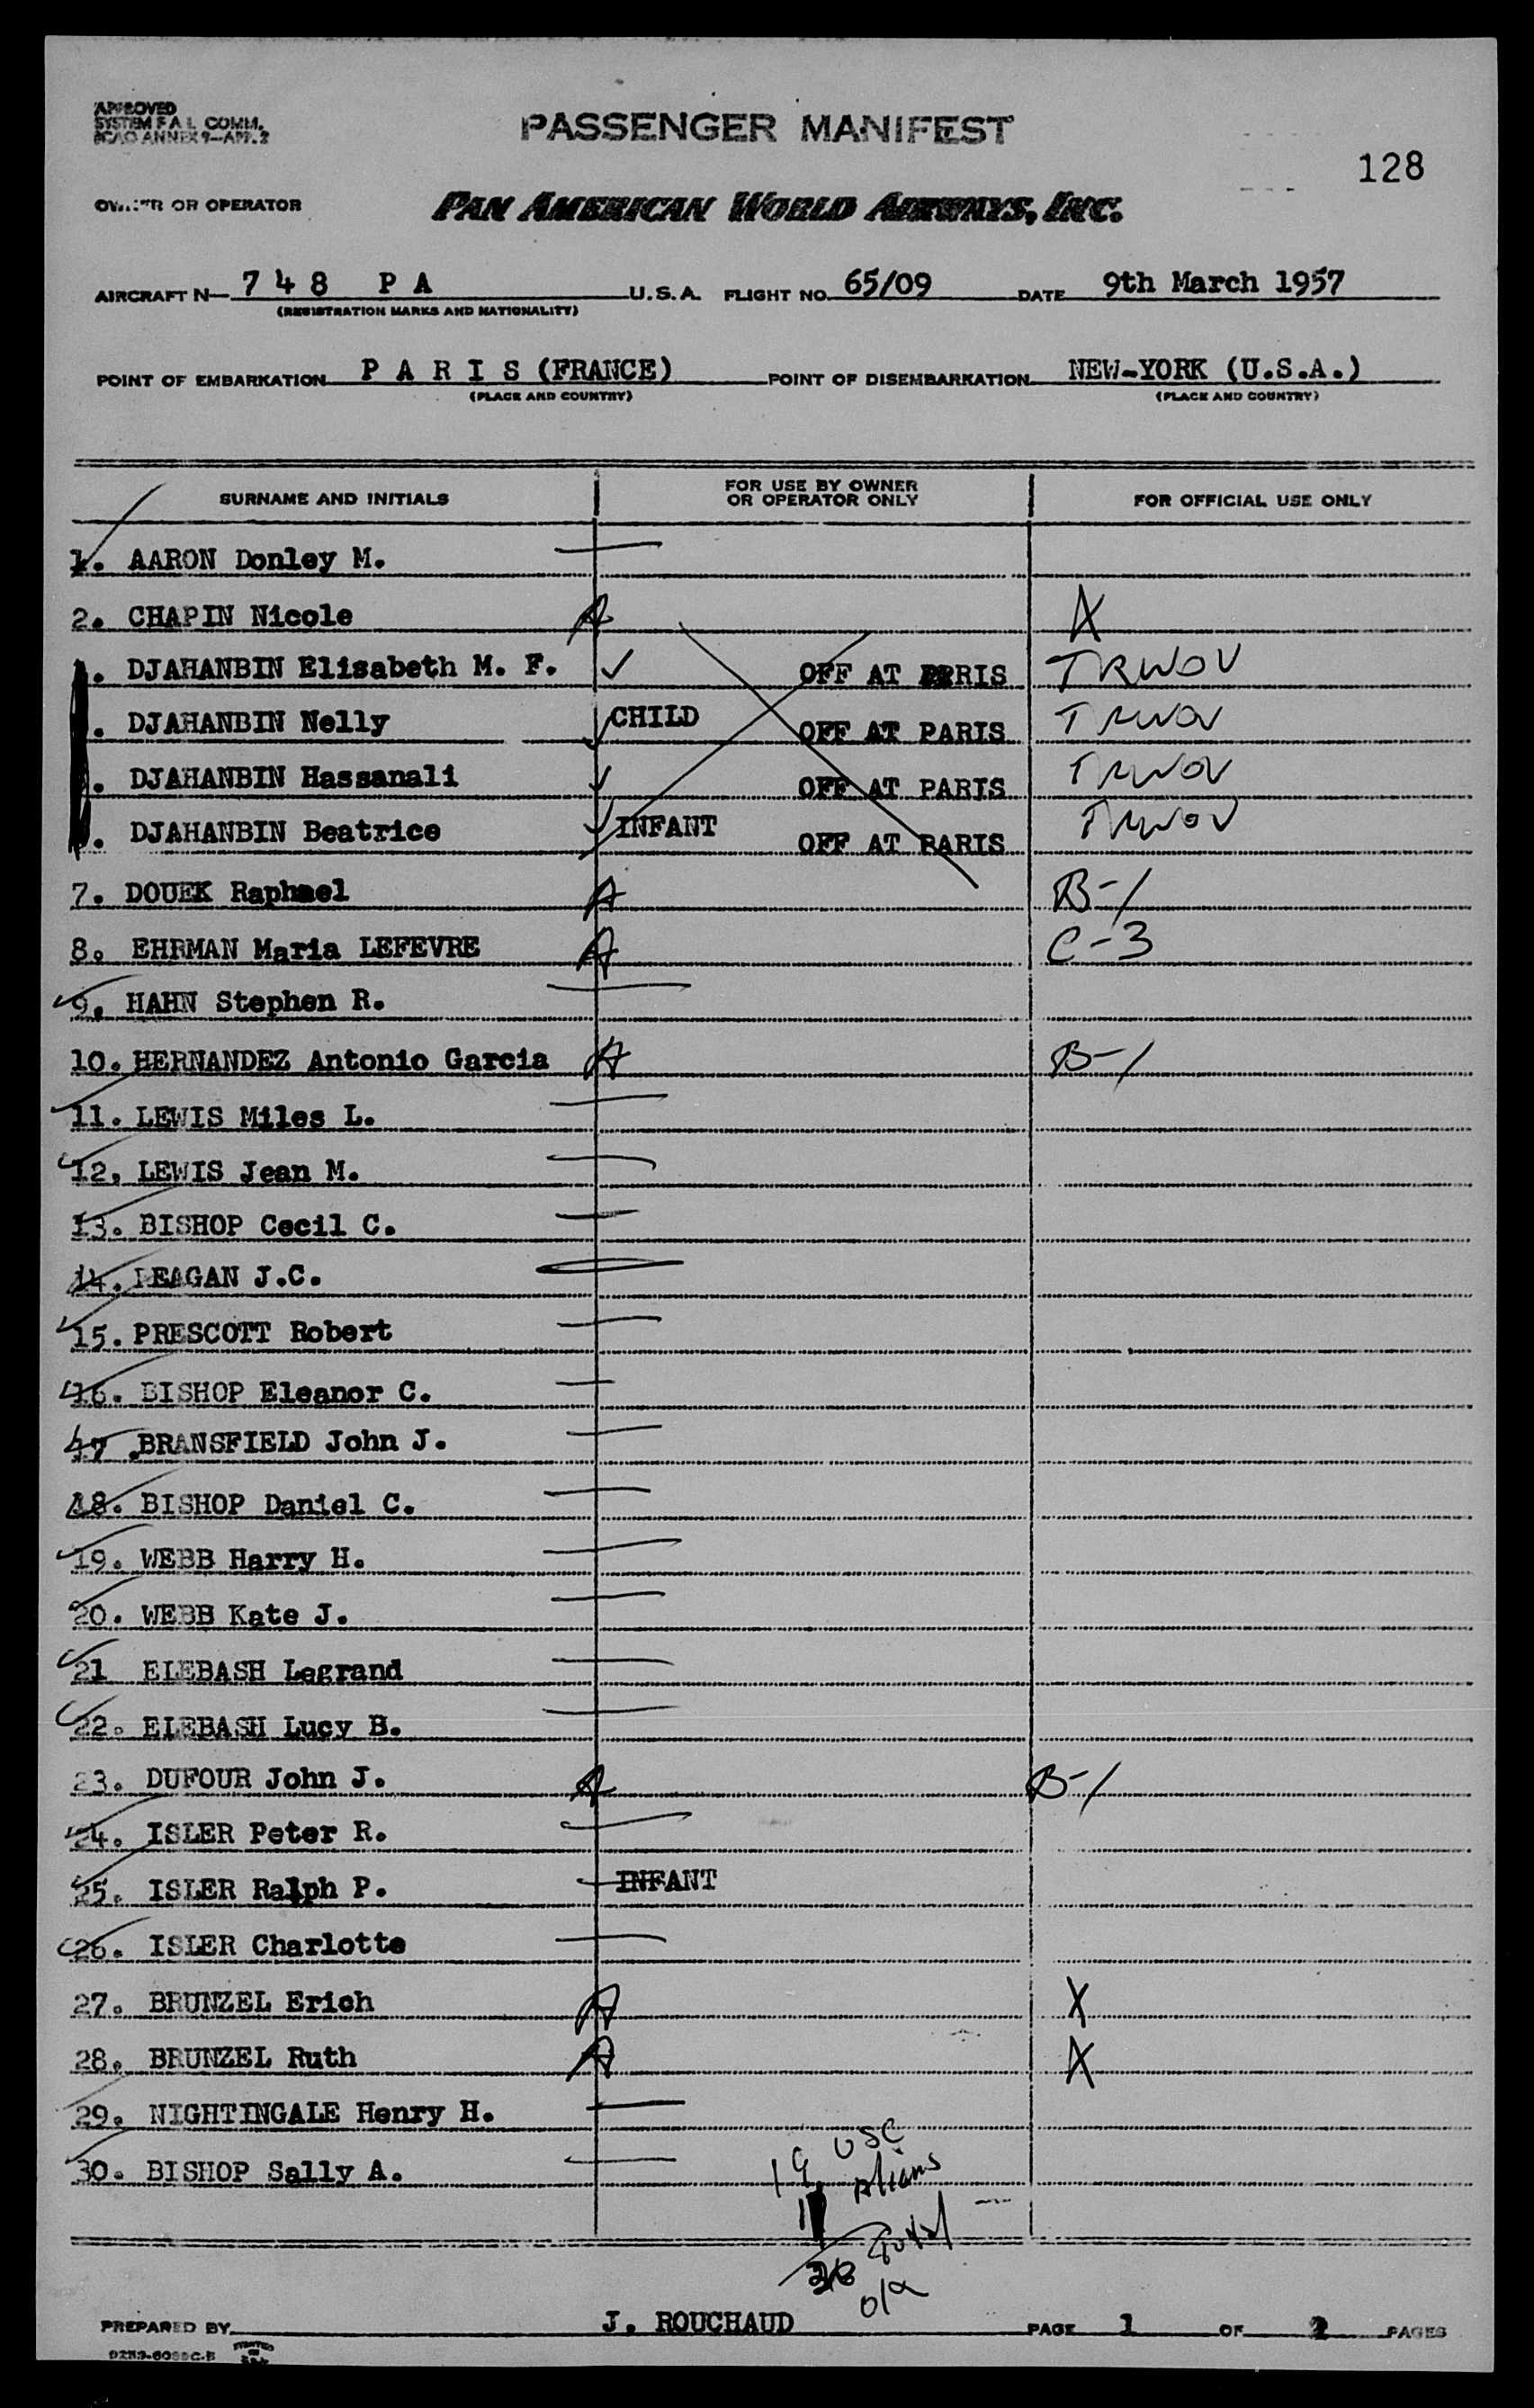 APPROVED
SYSTEM F A L COMM.
ICAO ANNEX 9—APP. 2
PASSENGER MANIFEST
128
OWNER OR OPERATOR
PAN AMERICAN WORLD AIRWAYS, INC.
AIRCRAFT N— 7 4 8 P A U.S.A. FLIGHT NO. 65/09 DATE 9th March 1957
(REGISTRATION MARKS AND NATIONALITY)
POINT OF EMBARKATION P A R I S (FRANCE) POINT OF DISEMBARKATION NEW-YORK (U.S.A.)
(PLACE AND COUNTRY) (PLACE AND COUNTRY)
SURNAME AND INITIALS FOR USE BY OWNER OR OPERATOR ONLY FOR OFFICIAL USE ONLY
1. AARON Donley M.
2. CHAPIN Nicole A X
. DJAHANBIN Elisabeth M. F. ✓ OFF AT PARIS TRWOV
. DJAHANBIN Nelly ✓ CHILD OFF AT PARIS TRWOV
. DJAHANBIN Hassanali ✓ OFF AT PARIS TRWOV
. DJAHANBIN Beatrice ✓ INFANT OFF AT PARIS TRWOV
7. DOUEK Raphael A B-1
8. EHRMAN Maria LEFEVRE A C-3
9. HAHN Stephen R.
10. HERNANDEZ Antonio Garcia A B-1
11. LEWIS Miles L.
12. LEWIS Jean M.
13. BISHOP Cecil C.
14. LEAGAN J.C.
15. PRESCOTT Robert
16. BISHOP Eleanor C.
17 .BRANSFIELD John J.
18. BISHOP Daniel C.
19. WEBB Harry H.
20. WEBB Kate J.
21 ELEBASH Legrand
22. ELEBASH Lucy B.
23. DUFOUR John J. A B-1
24. ISLER Peter R.
25. ISLER Ralph P. INFANT
26. ISLER Charlotte
27. BRUNZEL Erich A X
28. BRUNZEL Ruth A X
29. NIGHTINGALE Henry H.
30. BISHOP Sally A.
19 USC
Aliens
Total
PREPARED BY J. ROUCHAUD PAGE 1 OF 2 PAGES